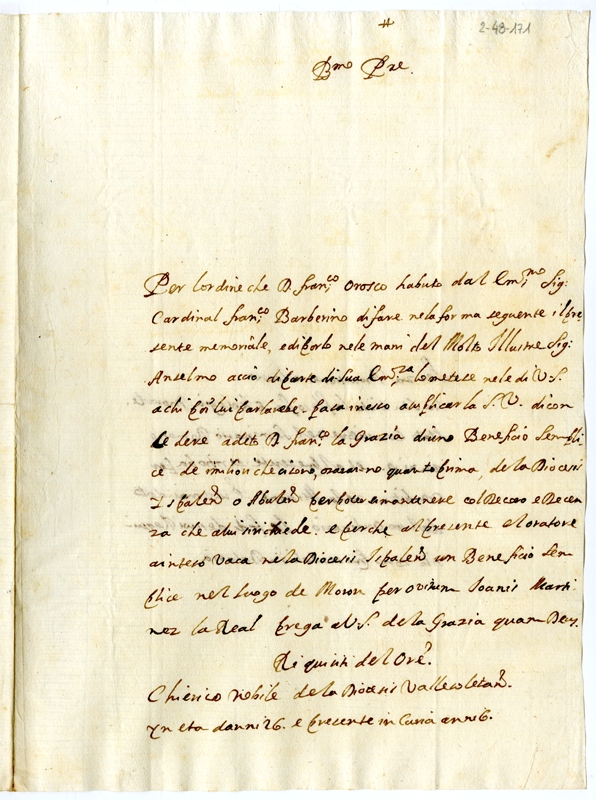 #
2-48-171
Bmo Pre.
Per lordine che D. franco Orosco habuto dal Emmo Sig:
Cardinal franco Barberino di fare nela forma seguente il pre
sente memoriale, e diporlo nele mani del Molto Illustre Sig:
Anselmo acciò di parte di Sua Emza lo metese nele di V.S.
a chi poi lui parlarebe. fa ca in esto a suplicar la S.V. di con
cedere a deto D. franco la Grazia di uno Beneficio Sempli
ce de quanto prima, de la Diocesis
Ispalen o Abulen per poter si mantenere col Decoro e Decen
za che a lui si richiede. e perche al presente el oratore
a inteso vaca nela Diocesis Ispalen un Beneficio Sen
plice nel luogo de Moron per ovitum Ioanis Marti
nez la Real prega a V.S. de la Grazia quam Deus.
Riquisiti del Ore.
Chierico nobile de la Diocesis Vallesoletan.
Yn eta danni 26. e precente in Curia anni 6.